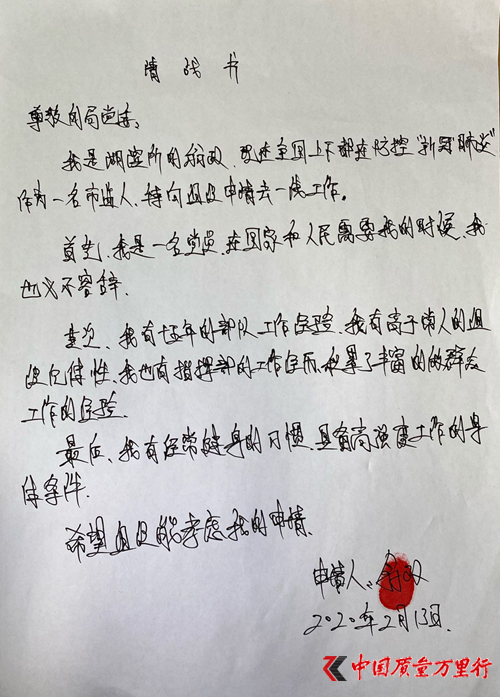 请战书
尊敬的局党委:
我是湖滨所的翁双,现在全国上下都在防控"新冠肺炎"
作为一名市监人,特向组织申请去一线工作。
首先,我是一名党员,在国家和人民需要我的时候,我
也义不容辞.
其次、我有十五年的部队工作经验,我有高于常人的组
织纪律性、我也有指挥部的工作经历,积累了丰富的的群众
工作的经验.
最后、我有经常健身的习惯,具备高强度工作的身
体条件.
希望组织能考虑我的申请.
申请人:翁双
2020年2月13日.
中国质量万里行